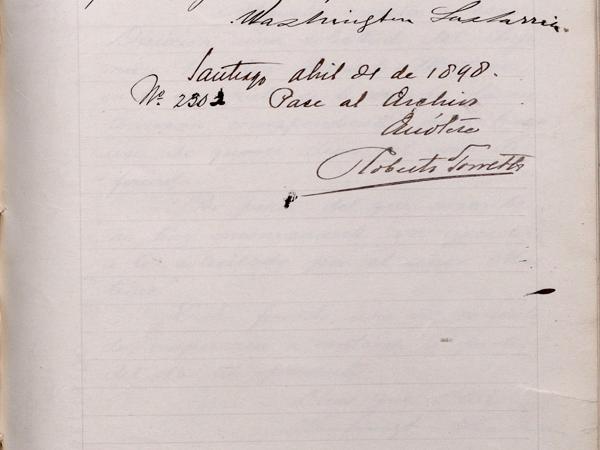 Washington Lastarria.
Santiago abril 21 de 1898.
Nº 2302 Pase al Archivo
Anótese
Roberto Torretti